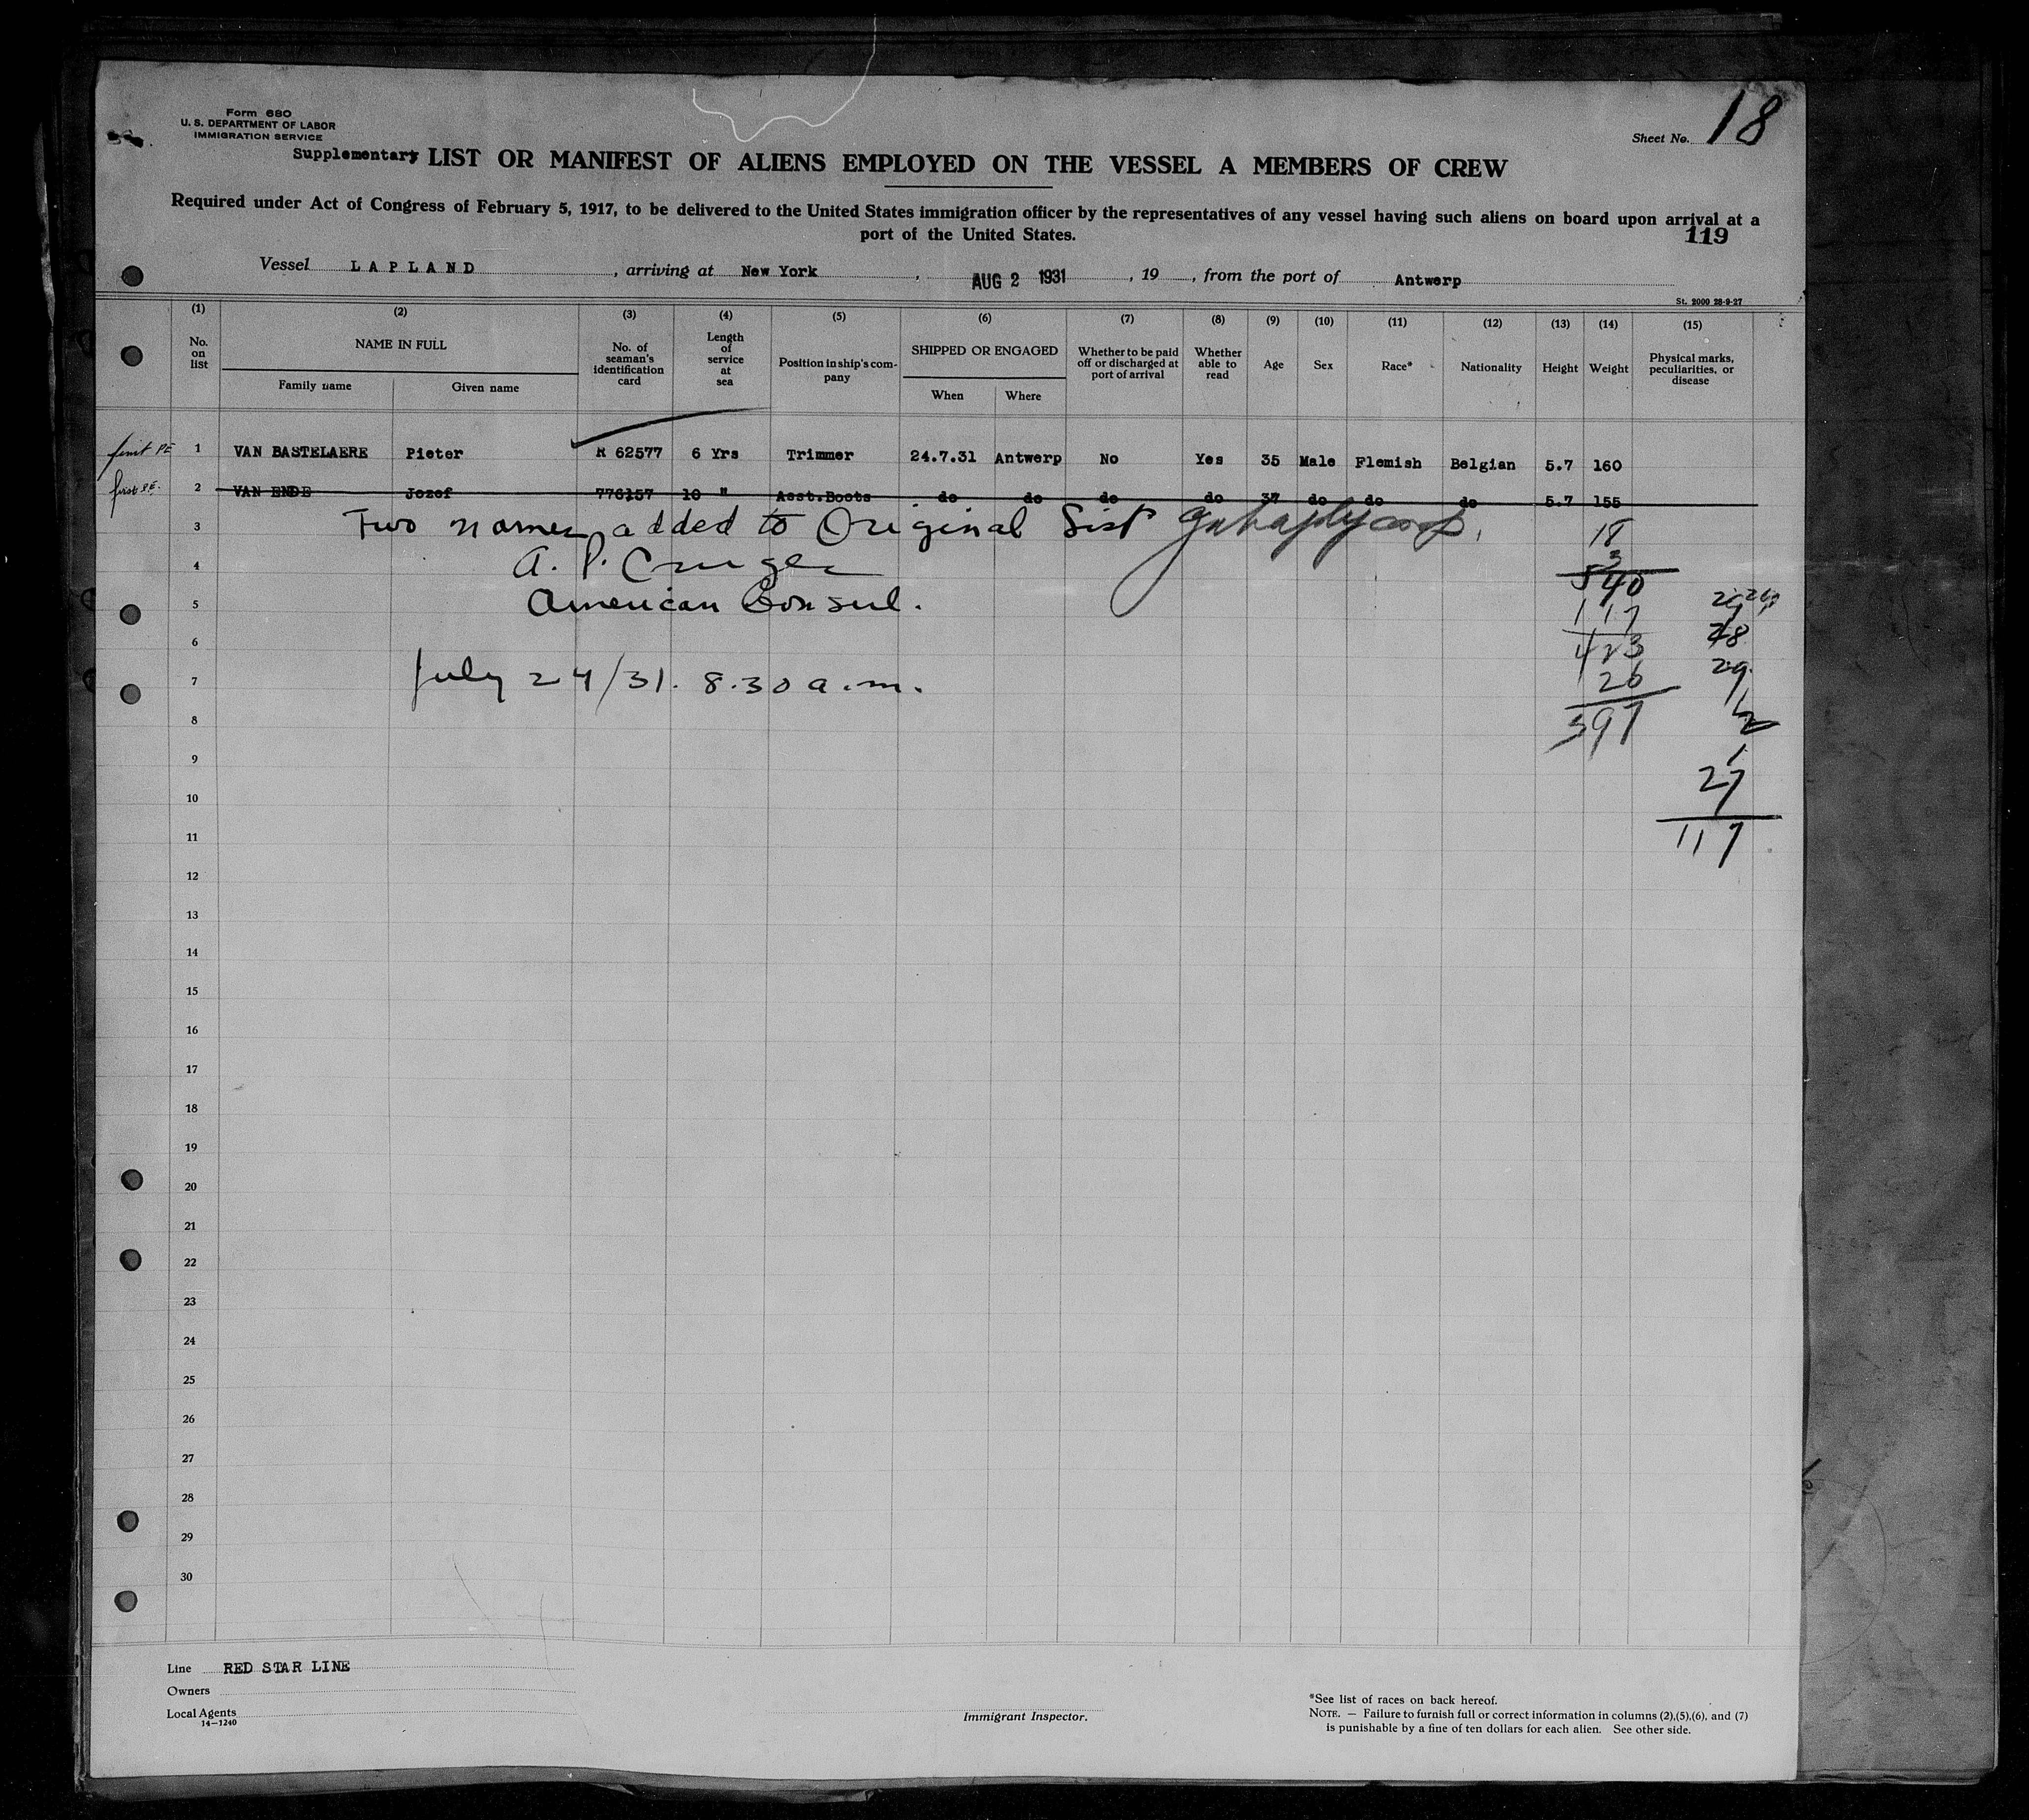 Form 680
U. S. DEPARTMENT OF LABOR
IMMIGRATION SERVICE
Sheet No. 18
Supplementary LIST OR MANIFEST OF ALIENS EMPLOYED ON THE VESSEL A MEMBERS OF CREW
Required under Act of Congress of February 5, 1917, to be delivered to the United States immigration officer by the representatives of any vessel having such aliens on board upon arrival at a
port of the United States.
119
Vessel LAPLAND, arriving at New York, AUG 2 1931, 19, from the port of Antwerp
St. 2000 28-9-27
(1) (2) (3) (4) (5) (6) (7) (8) (9) (10) (11) (12) (13) (14) (15)
No. on list NAME IN FULL Family name Given name No. of seaman's identification card Length of service at sea Position in ship's company SHIPPED OR ENGAGED When Where Whether to be paid off or discharged at port of arrival Whether able to read Age Sex Race* Nationality Height Weight Physical marks, peculiarities, or disease
first PE 1 VAN BASTELAERE Pieter R 62577 6 Yrs Trimmer 24.7.31 Antwerp No Yes 35 Male Flemish Belgian 5.7 160
first PE. 2 VAN ENDE Jozef 776157 10 " Asst.Boots do do do do 37 do do do 5.7 155
3 Two names added to Original List
18
4 A. P. Cruger
3
540
5 American Consul.
117
29
6
423
28
7 July 24/31. 8.30 a.m.
26
29
8
397
2
9
1
27
10
11
117
12
13
14
15
16
17
18
19
20
21
22
23
24
25
26
27
28
29
30
Line RED STAR LINE
Owners
Local Agents
14—1240
Immigrant Inspector.
*See list of races on back hereof.
NOTE. — Failure to furnish full or correct information in columns (2),(5),(6), and (7)
is punishable by a fine of ten dollars for each alien. See other side.